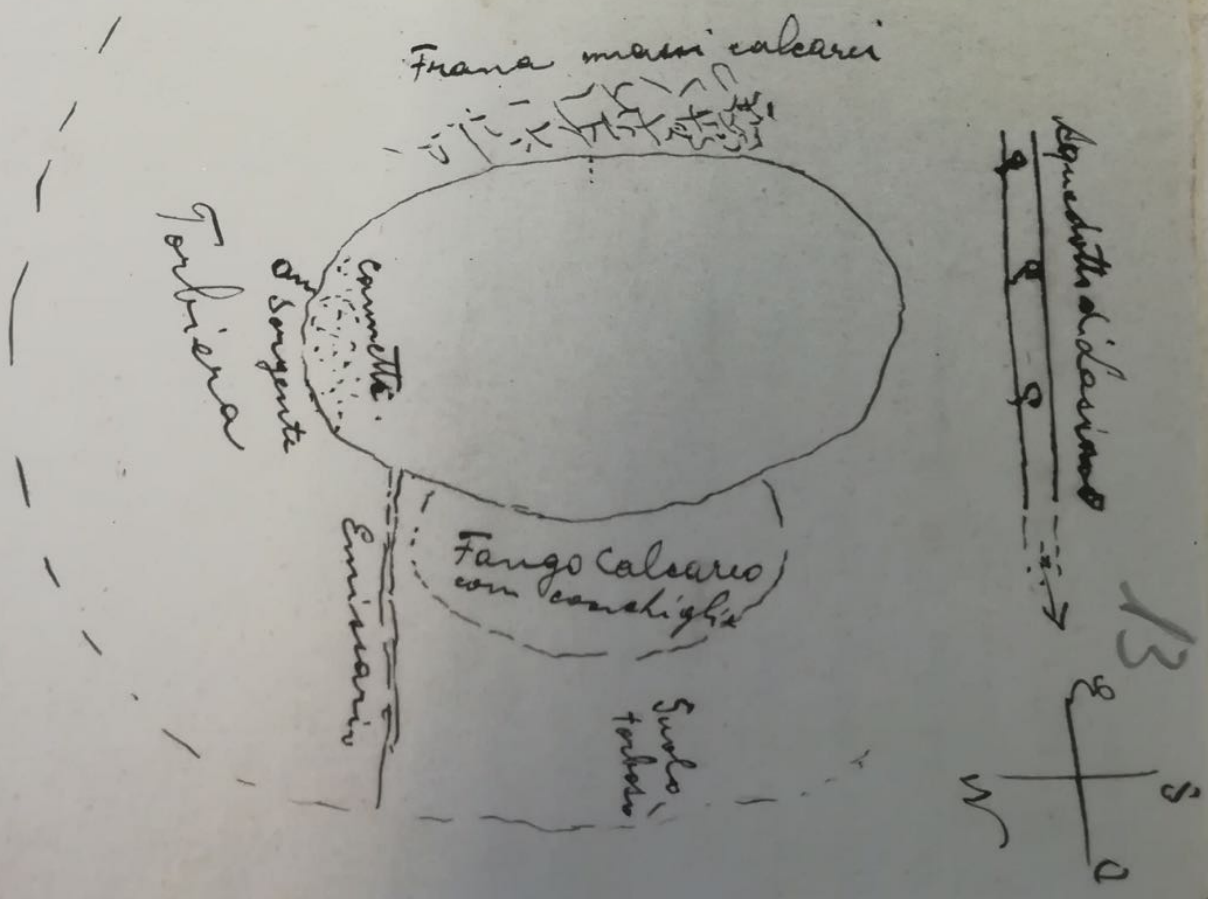 Frana massi calcari
Acquedotto di Lasino
Torbiera
Sorgente
Cannetti.
Emissario
Fango Calcareo
con conchiglie
Suolo
torboso
13
E
S
N
O